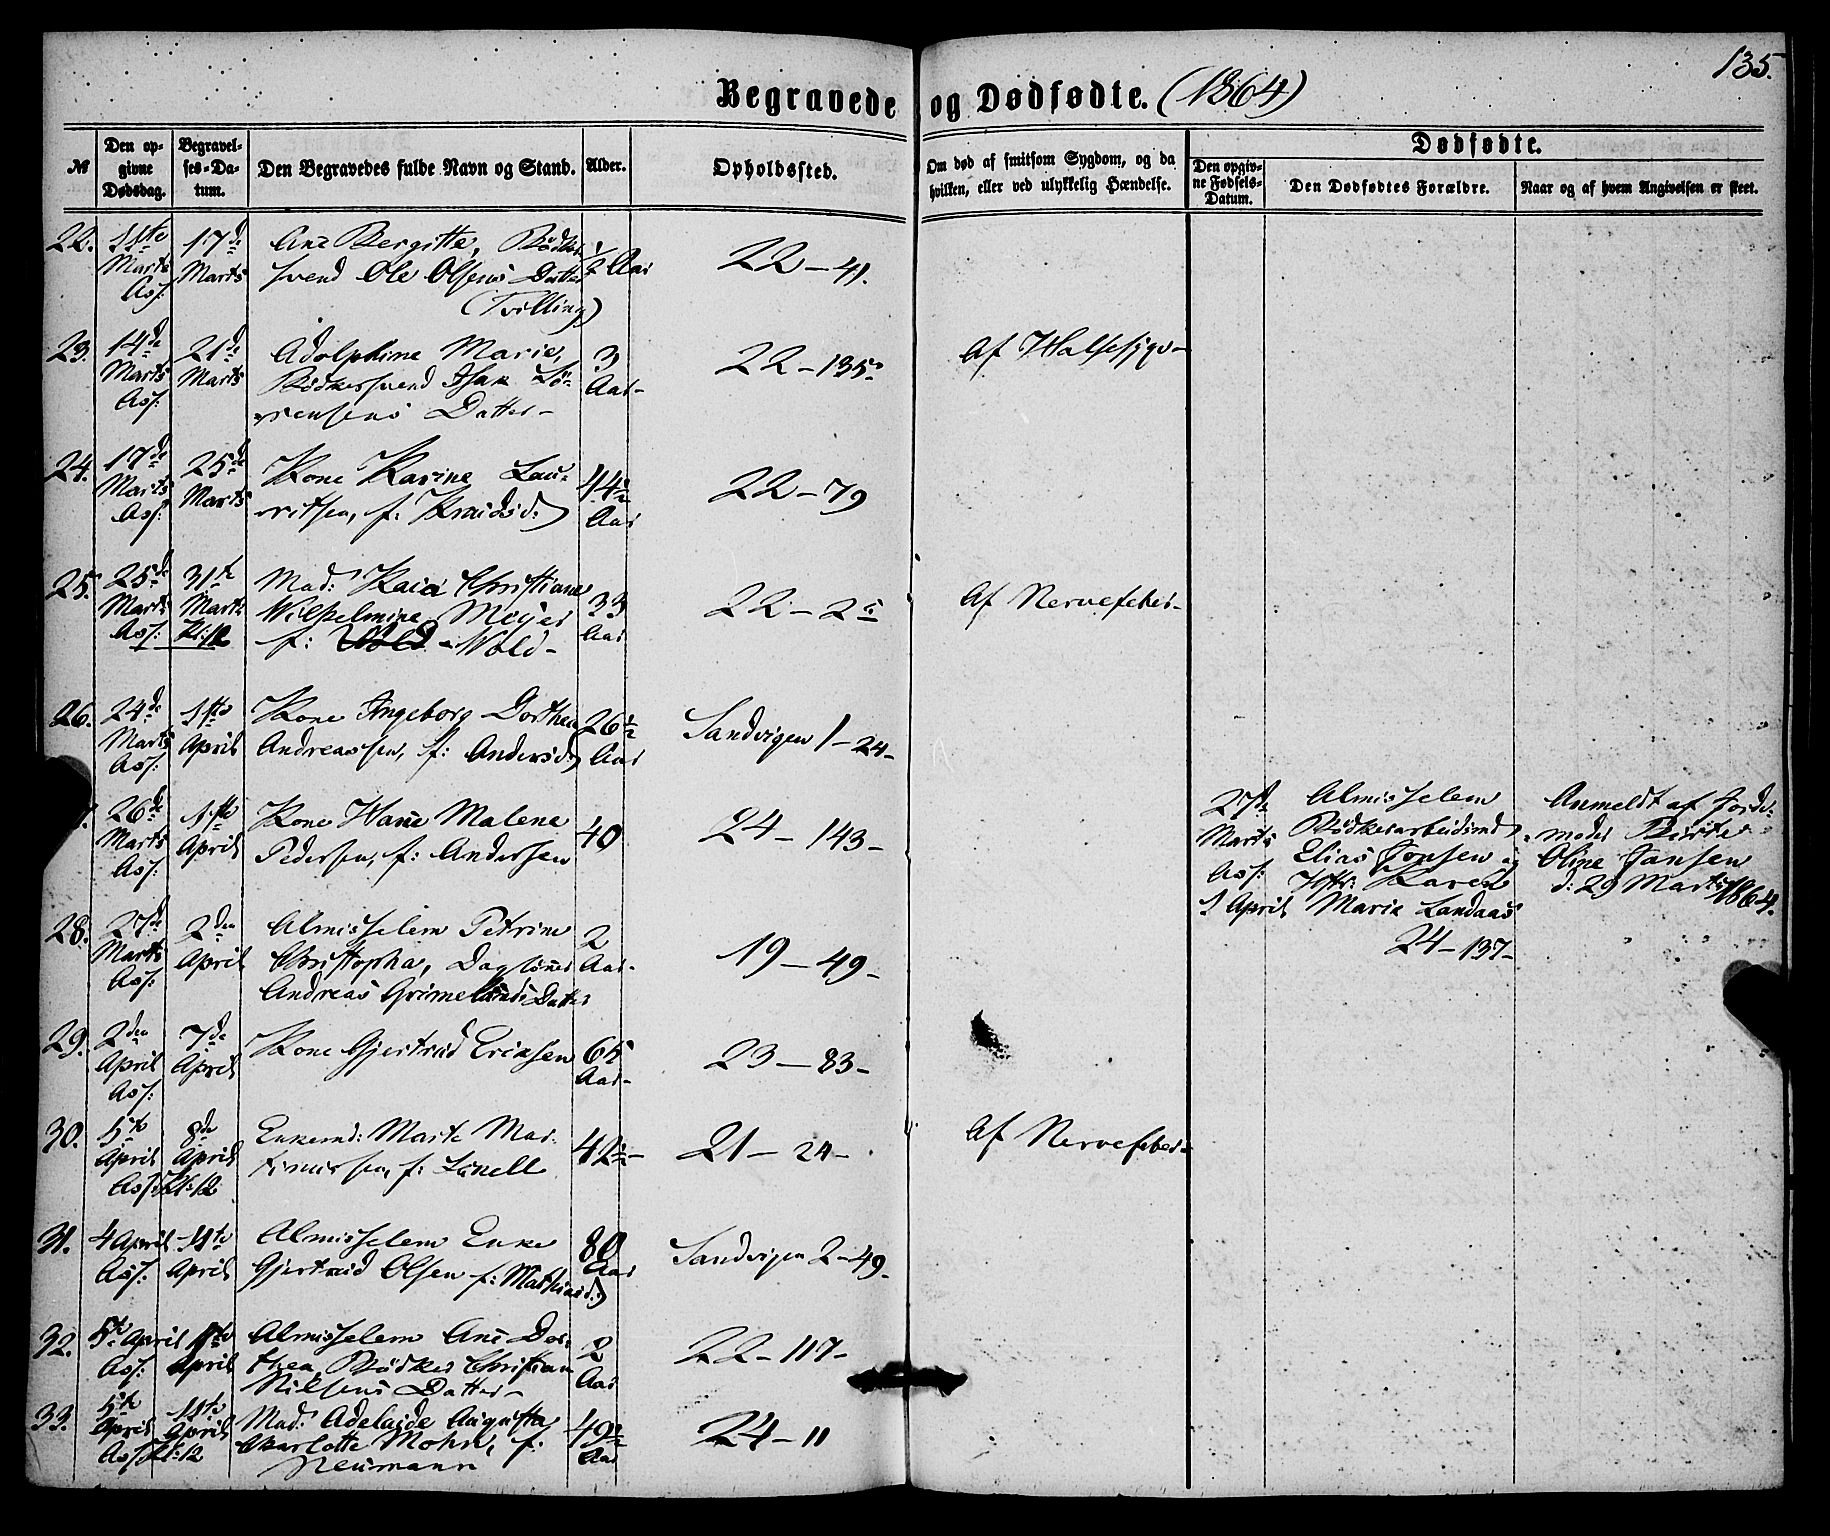 135.
Begravede og Dødfødte. (1864)
№
Den opgivne Dødsdag.
Begravelses-Datum.
Den Begravedes fulde Navn og Stand.
Alder.
Opholdssted.
Om død af smitsom Sygdom, og da hvilken, eller ved ulykkelig Hændelse.
Dødfødte.
Den opgivne Fødsels-Datum.
Den Dødfødtes Forældre.
Naar og af hvem Angivelsen er skeet.
22. 11te 17de Ane Bergitte, Bødker
Marts Marts svend Ole Olsens Datter ½ Aar 22 – 41.
Ass: (Tvilling)
23. 14de 21de Adolphine Marie, 3 22 – 135 Af Halsesyge
Marts Marts Bødkersvend Isak Sö- Aar
Ass: rensens Datter
24. 17de 25de Kone Karine Lau- 44½ 22 – 79
Marts Marts ritsen, f: Knudsd: Aar
Ass:
25. 25de 31te Mad: Kaia Christiane 33 22 – 2 Af Nervefeber
Marts Marts Wilhelmine Meyer Aar
Ass: Kl: 12 f: Wold
26. 24de 1ste Kone Ingeborg Dorthea 26½ Sandvigen 1 – 24
Marts April Andreassen, f: Andersd: Aar
Ass:
26de 1ste Kone Hane Malene 40 24 – 143
Marts April Pedersen, f: Andersen
Ass:
27de Almisselem Anmeldt af Jorde-
Marts Bødkerarbeidsmd moder Birte
Ass: Elias Jonsen og Oline Jansen
1 April Hstr: Karen d: 29 Marts 1864.
Marie Landaas
24 – 137
28. 27de 2den Almisselem Petrine 2 19 – 49
Marts April Christopha, Daglöner Aar
Ass: Andreas Grimelunds Datter
29. 2den 7de Kone Gjertrud Eriksen 65 23 – 83
April April Aar
Ass:
30. 5te 8de Enkemd: Marte Mar- 42½ 21 – 24 Af Nervefeber
April April tinussen, f: Linell
Ass: Kl: 12
31. 4 April 11te Almisselem Enke 80 Sandvigen 2 – 49
Ass: April Gjertrud Olsen f: Mathiasd: Aar
32. 5te April 11te Almisselem Ane Dor- 2 22 – 117
Ass: April thea, Bødker Christian Aar
Nilsens Datter
33. 5te 11te Mad: Adelaide Augusta 49½ 24 – 11
April April Charlotte Mohn, f: Aar
Ass: Kl: 12 Neumann